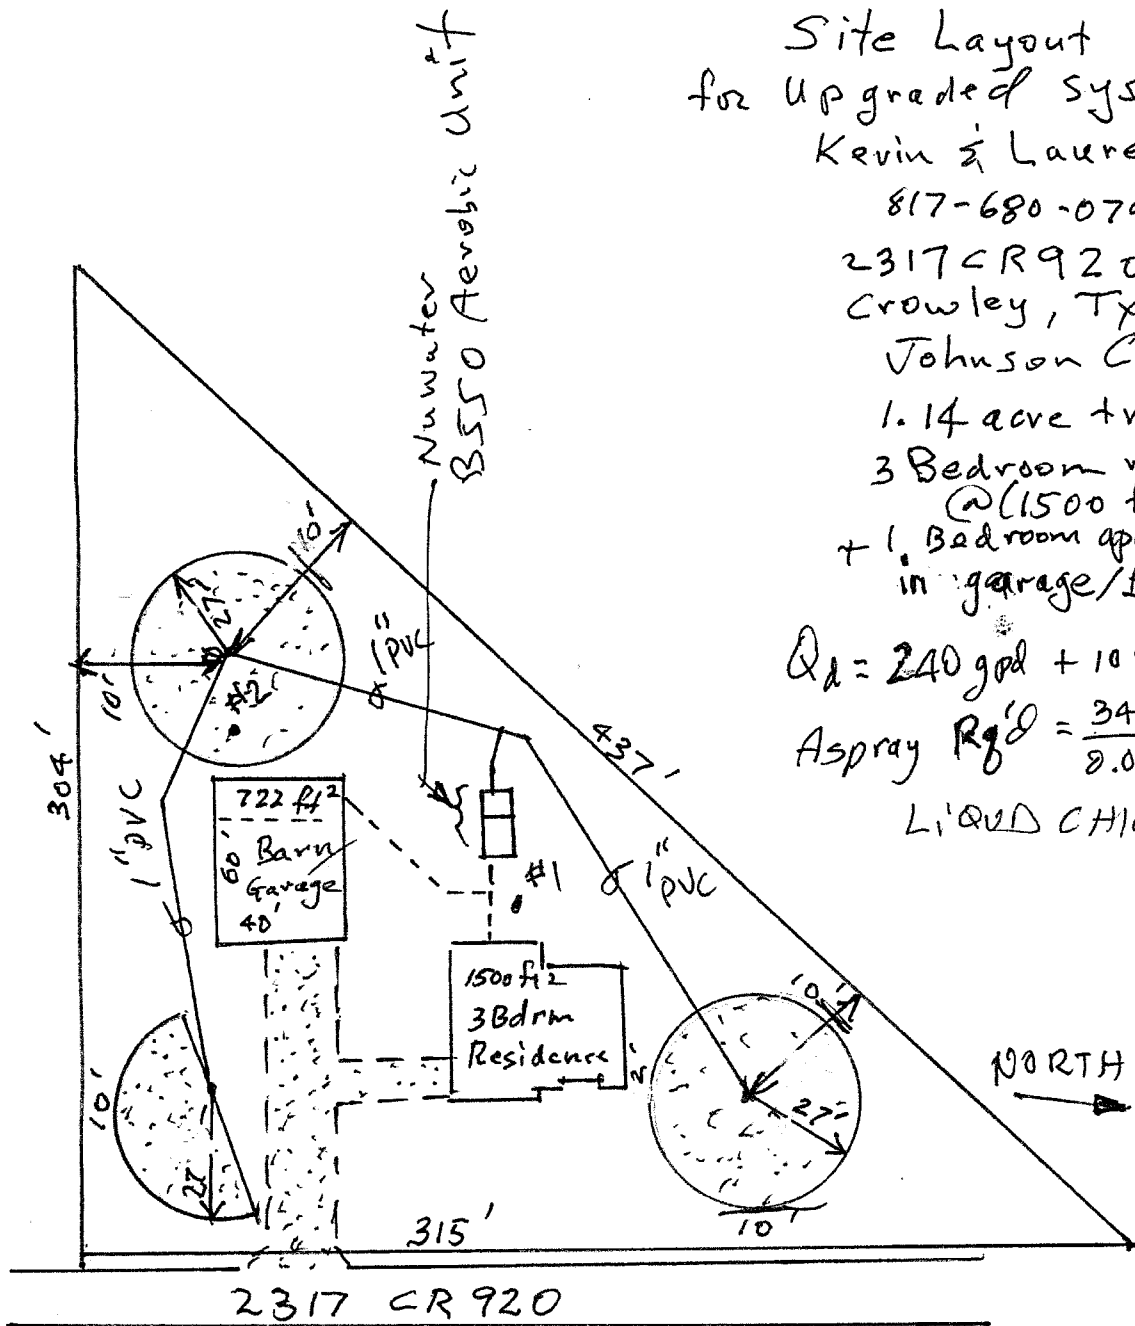 Site Layout
for Upgraded Sys
Kevin & Laure
817-680-07
2317 CR 920
Crowley, Tx
Johnson C
1.14 acre tr
3 Bedroom
@(1500 f
+ 1 Bedroom ap
in garage/
Qd = 240 gpd + 10
Aspray Rq'd = 34
8.0
LiQUD CHl
Nuwater
B550 Aerobic Unit
10'
27'
10'
#2
1" PVC
437'
304'
1" PVC
722 ft²
60' Barn
Garage
40'
#1
1" PVC
1500 ft2
3 Bdrm
Residence
10'
27'
10'
NORTH
10'
27
315'
2317 CR 920